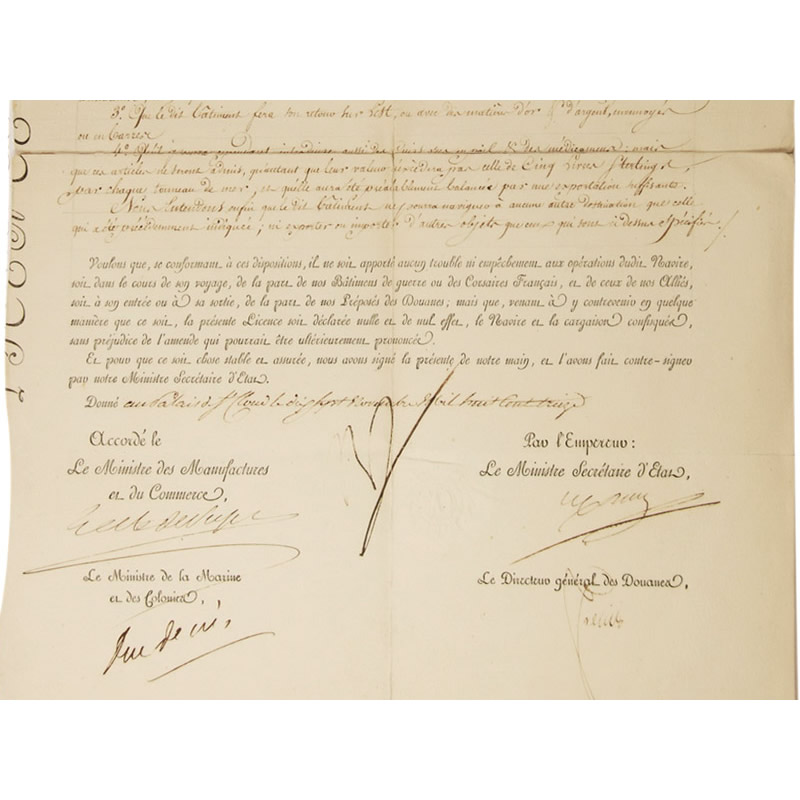 3º. Que le dit bâtiment fera son retour sur Lest, ou avec des matières d'or & d'argent, monnoyés
ou en barres
4º. Qu'il introduire aussi des cuirs en poil & des médicamens; mais
que ces articles ne seront admis, qu'autant que leur valeur n'excédera pas celle de Cinq Livres Sterling,
par chaque tonneau de mer, et qu'elle aura été préalablement balancée par une exportation suffisante.
Nous Entendons enfin que le dit bâtiment ne pourra naviguer à aucune autre destination que celle
qui a été précédemment indiquée; ni exporter ou importer d'autres objets que ceux qui sont ci dessus spécifiés.
Voulons que, se conformant à ces dispositions, il ne soit apporté aucun trouble ni empêchement aux opérations dudit Navire,
soit dans le cours de son voyage, de la part de nos Bâtimens de guerre ou des Corsaires Français, et de ceux de nos Alliés,
soit à son entrée ou à sa sortie, de la part de nos Préposés des Douanes; mais que, venant à y contrevenir en quelque
manière que ce soit, la présente Licence soit déclarée nulle et de nul effet, le Navire et la cargaison confisqués,
sans préjudice de l'amende qui pourrait être ultérieurement prononcée.
Et pour que ce soit chose stable et assurée, nous avons signé la présente de notre main, et l'avons fait contre-signer
par notre Ministre Secrétaire d'État.
Donné au Palais de St Cloud le dix sept Novembre Mil huit Cent treize
Accordé le
Par l'Empereur:
Le Ministre des Manufactures
et du Commerce,
Le Ministre Secrétaire d'État,
Le Ministre de la Marine
et des Colonies,
Le Directeur général des Douanes,